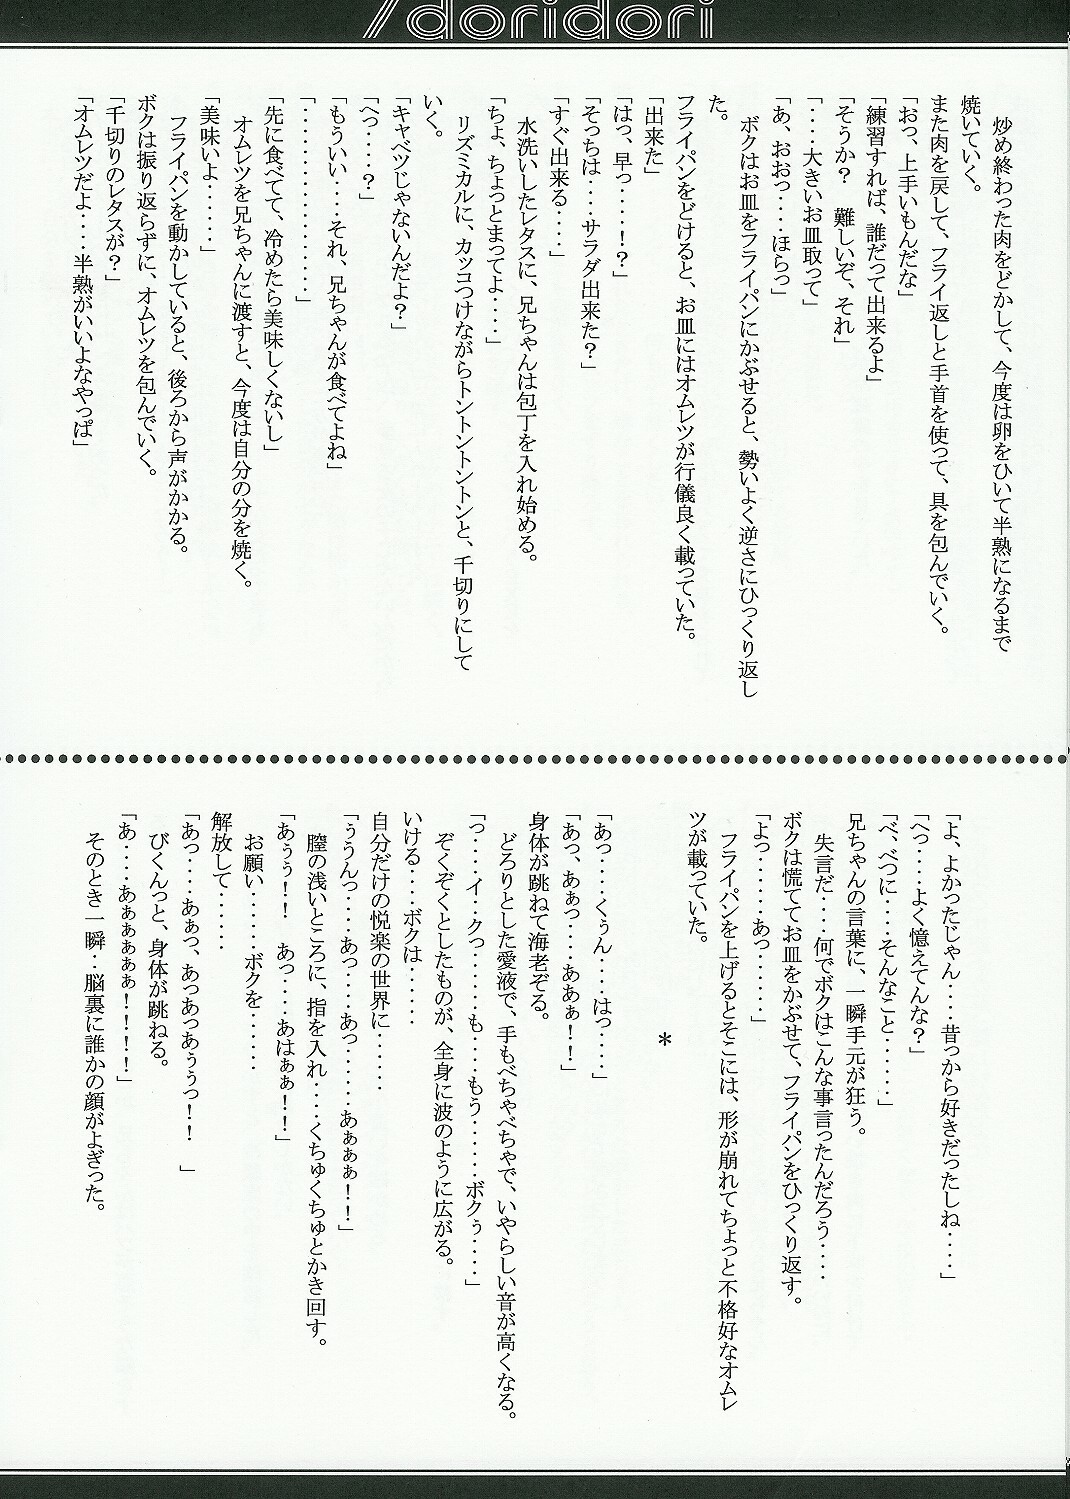 /doridori
炒め終わった肉をどかして、今度は卵をひいて半熟になるまで
焼いていく。
また肉を戻して、フライ返しと手首を使って、具を包んでいく。
「おっ、上手いもんだな」
「練習すれば、誰だって出来るよ」
「そうか？　難しいぞ、それ」
「・・・・大きいお皿取って」
「あ、おおっ・・・・ほらっ」
ボクはお皿をフライパンにかぶせると、勢いよく逆さにひっくり返し
た。
フライパンをどけると、お皿にはオムレツが行儀良く載っていた。
「出来た」
「はっ、早っ・・・・！？」
「そっちは・・・・サラダ出来た？」
「すぐ出来る・・・・」
水洗いしたレタスに、兄ちゃんは包丁を入れ始める。
「ちょ、ちょっとまってよ・・・・」
リズミカルに、カッコつけながらトントントントンと、千切りにして
いく。
「キャベツじゃないんだよ？」
「へっ・・・・？」
「もういい・・・・それ、兄ちゃんが食べてよね」
「・・・・・・・・・・・・・・・・」
「先に食べてて、冷めたら美味しくないし」
オムレツを兄ちゃんに渡すと、今度は自分の分を焼く。
「美味いよ・・・・・・」
フライパンを動かしていると、後ろから声がかかる。
ボクは振り返らずに、オムレツを包んでいく。
「千切りのレタスが？」
「オムレツだよ・・・・半熟がいいよなやっぱ」
「よ、よかったじゃん・・・・昔っから好きだったしね・・・・」
「へっ・・・・よく憶えてんな？」
「べ、べつに・・・・そんなこと・・・・・・」
兄ちゃんの言葉に、一瞬手元が狂う。
失言だ・・・・何でボクはこんな事言ったんだろう・・・・
ボクは慌ててお皿をかぶせて、フライパンをひっくり返す。
「よっ・・・・・・あっ・・・・・・」
フライパンを上げるとそこには、形が崩れてちょっと不格好なオムレ
ツが載っていた。
＊
「あっ・・・・くぅん・・・・はっ・・・・」
「あっ、あぁっ・・・・ああぁ！！」
身体が跳ねて海老ぞる。
どろりとした愛液で、手もべちゃべちゃで、いやらしい音が高くなる。
「っ・・・・イ・・クっ・・・・・・も・・・・もう・・・・・・ボクぅ・・・・」
ぞくぞくとしたものが、全身に波のように広がる。
いける・・・・ボクは・・・・・・
自分だけの悦楽の世界に・・・・・・
「ぅうんっ・・・・あっ・・・・あっ・・・・・・あぁぁぁ！！」
膣の浅いところに、指を入れ・・・・くちゅくちゅとかき回す。
「あぅぅ！！　あっ・・・・あはぁぁ！！」
お願い・・・・・・ボクを・・・・・・
解放して・・・・・・
「あっ・・・・あぁっ、あっあっあぅぅっ！！　」
びくんっと、身体が跳ねる。
「あ・・・・あぁぁぁぁぁ！！！！」
そのとき一瞬・・脳裏に誰かの顔がよぎった。